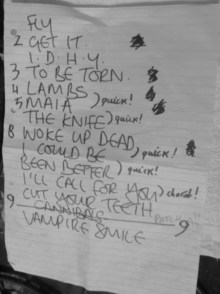 FLY
2 GET IT.
I.D.H.Y.
3 TO BE TORN.
4 LAMBS
5 MAIA )quick!
THE KNIFE )quick!
8 WOKE UP DEAD,
I COULD BE ) quick!
BEEN BETTER ) quick!
I'LL CALL FOR YOU ) chords!
CUT YOUR TEETH
9 CANNIBALS 9
VAMPIRE SMILE